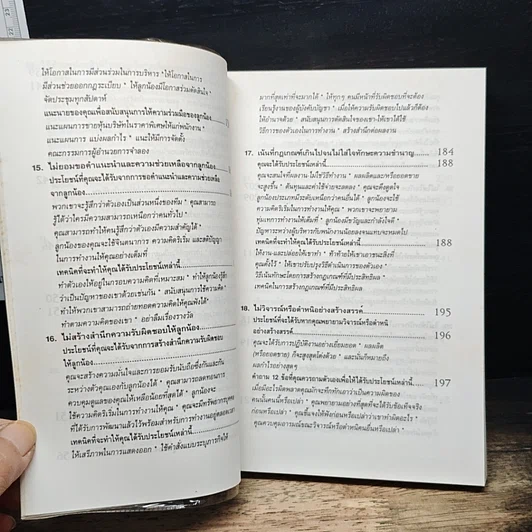 ให้โอกาสในการมีส่วนร่วมในการบริหาร * ให้โอกาสในการ
มีส่วนช่วยออกกฎระเบียบ * ให้ลูกน้องมีโอกาสร่วมตัดสินใจ *
จัดประชุมทุกสัปดาห์
แนะนายของคุณเพื่อสนับสนุนการให้ความร่วมมือของลูกน้อง
แนะแผนการขายหุ้นบริษัทในราคาพิเศษให้แก่พนักงาน *
แนะแผนการ แบ่งผลกำไร * แนะให้มีการจัดตั้ง
คณะกรรมการผู้อำนวยการจำลอง
15. ไม่ยอมขอคำแนะนำและความช่วยเหลือจากลูกน้อง
ประโยชน์ที่คุณจะได้รับจากการขอคำแนะนำและความช่วยเหลือ
จากลูกน้อง
พวกเขาจะรู้สึกว่าตัวเองเป็นส่วนหนึ่งของทีม * คุณสามารถ
รู้ได้ว่าใครมีความสามารถเหนือกว่าคนทั่วไป *
คุณสามารถทำให้คนรู้สึกว่าตัวเองมีความสำคัญได้ *
ลูกน้องของคุณจะใช้จินตนาการ ความคิดริเริ่ม และสติปัญญา
ในการทำงานให้คุณอย่างเต็มที่
เทคนิคที่จะทำให้คุณได้รับประโยชน์เหล่านี้
ทำตัวเองให้อยู่ในกรอบความคิดที่เหมาะสม * ทำให้ลูกน้องรู้สึก
ว่าเป็นปัญหาของเขาด้วยเช่นกัน * สนับสนุนการใช้ความคิด *
ทำให้พวกเขาสามารถถ่ายทอดความคิดให้คุณฟังได้ *
ทำตามความคิดของเขา * อย่าลืมเรื่องรางวัล
16. ไม่สร้างสำนึกความรับผิดชอบให้ลูกน้อง
ประโยชน์ที่คุณจะได้รับจากการสร้างสำนึกความรับผิดชอบ
ให้ลูกน้อง
คุณจะสร้างความมั่นใจและการยอมรับนับถือซึ่งกันและกัน
ระหว่างตัวคุณเองกับลูกน้องได้ * คุณสามารถลดทอนการ
ควบคุมดูแลของคุณให้เหลือน้อยที่สุดได้ * ลูกน้องจะ
ใช้ความคิดริเริ่มในการทำงานให้คุณ * คุณจะมีทรัพยากรบุคคล
ที่ได้รับการพัฒนาแล้วไว้พร้อมสำหรับการทำงานอยู่ตลอดเวลา
เทคนิคที่จะทำให้คุณได้รับประโยชน์เหล่านี้
ให้เสรีภาพในการแสดงออก * ใช้คำสั่งแบบระบุภารกิจให้
มากที่สุดเท่าที่จะมากได้ * ให้ทุกๆ คนมีหน้าที่รับผิดชอบที่จะต้อง
เรียนรู้งานของผู้บังคับบัญชา * เมื่อให้ความรับผิดชอบไปแล้วก็ต้อง
ให้อำนาจด้วย * สนับสนุนการตัดสินใจของเขา * ให้เขาได้ใช้
วิธีการของตัวเองในการทำงาน * สร้างสำนึกต่อผลงาน
17. เน้นที่กฎเกณฑ์เกินไปจนไม่ใส่ใจทักษะความชำนาญ 184
คุณจะได้รับประโยชน์เหล่านี้ 188
คุณจะสนใจที่ผลงาน ไม่ใช่วิธีทำงาน * ผลผลิตและ/หรือยอดขาย
จะสูงขึ้น * ต้นทุนและค่าใช้จ่ายจะลดลง * คุณจะดึงดูดใจ
ลูกน้องประเภทมีระดับเหนือกว่าคนอื่นได้ * ลูกน้องจะใช้
ความคิดริเริ่มในการทำงานให้คุณ * พวกเขาจะพยายาม
ทุ่มเทการทำงานให้เต็มที่ * ลูกน้องมีขวัญและกำลังใจดี *
ปัญหาระหว่างผู้บริหารกับพนักงานน้อยลงจนแทบจะหมดไป
เทคนิคที่จะทำให้คุณได้รับประโยชน์เหล่านี้ 188
ให้งาน และปล่อยให้เขาทำ * ท้าทายให้เขาเอาชนะสิ่งที่
คุณตั้งไว้ * ให้เขาปรับปรุงวิธีดำเนินการของตัวเอง *
วิธีเน้นทักษะโดยการสร้างกฎเกณฑ์ที่มีประสิทธิผล *
เทคนิคในการสร้างกฎเกณฑ์ที่มีประสิทธิผล
18. ไม่วิจารณ์หรือตำหนิอย่างสร้างสรรค์ 195
ประโยชน์ที่จะได้รับหากคุณพยายามวิจารณ์หรือตำหนิ
อย่างสร้างสรรค์ 196
คุณจะได้รับการปฏิบัติงานอย่างเยี่ยมยอด * ผลผลิต
(หรือยอดขาย) ก็จะสูงสุดโด่งด้วย * และนั่นก็หมายถึง
ผลกำไรอย่างสูงสุดๆ
คำถาม 12 ข้อที่คุณควรถามตัวเองเพื่อให้ได้รับประโยชน์เหล่านี้ 197
เมื่อมีอะไรผิดพลาดคุณมักจะทึกทักเอาว่าเป็นความผิดของ
คนนั้นคนนี้หรือเปล่า * คุณพยายามอย่างที่สุดที่จะได้รับข้อเท็จจริง
ก่อนหรือเปล่า * คุณชี้แจงให้ฟังก่อนหรือเปล่าว่าเขาทำผิดอะไร *
คุณควบคุมอารมณ์ขณะวิจารณ์หรือตำหนิคนอื่นหรือเปล่า *